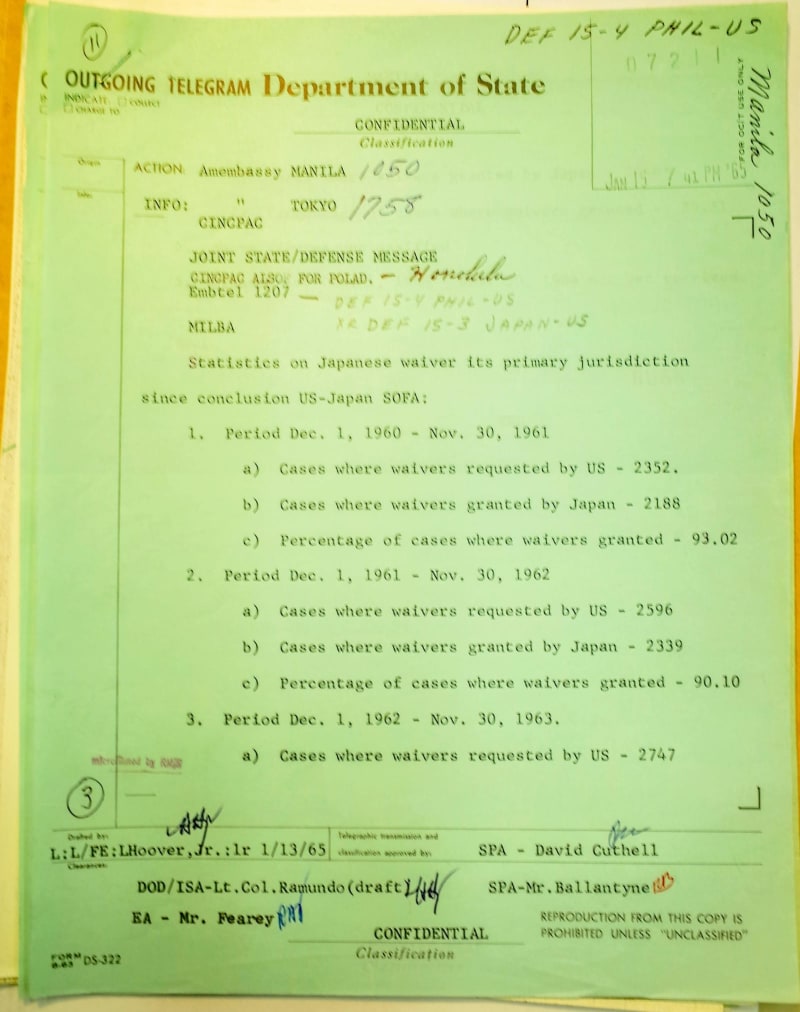 11
DEF 15-4 PHIL-US
07211
OUTGOING TELEGRAM Department of State
INDICATE: COLLECT
CHARGE TO
FOR OC/T USE ONLY
Manila 1050
CONFIDENTIAL
Classification
Origin
ACTION: Amembassy MANILA 1050
JAN 13 7 41 PM '65
Info:
INFO: " TOKYO 1758
CINCPAC
JOINT STATE/DEFENSE MESSAGE
CINCPAC ALSO FOR POLAD. - Honolulu
Embtel 1207 - DEF 15-4 PHIL-US
MILBA XR DEF 15-3 JAPAN-US
Statistics on Japanese waiver its primary jurisdiction
since conclusion US-Japan SOFA:
1. Period Dec. 1, 1960 - Nov. 30, 1961
a) Cases where waivers requested by US - 2352.
b) Cases where waivers granted by Japan - 2188
c) Percentage of cases where waivers granted - 93.02
2. Period Dec. 1, 1961 - Nov. 30, 1962
a) Cases where waivers requested by US - 2596
b) Cases where waivers granted by Japan - 2339
c) Percentage of cases where waivers granted - 90.10
3. Period Dec. 1, 1962 - Nov. 30, 1963.
a) Cases where waivers requested by US - 2747
3
Drafted by:
L:L/FE:LHoover,Jr.:lr 1/13/65
Telegraphic transmission and
classification approved by:
SPA - David Cuthell
Clearances:
DOD/ISA-Lt.Col.Ramundo(draft)
SPA-Mr.Ballantyne
EA - Mr. Fearey
REPRODUCTION FROM THIS COPY IS
PROHIBITED UNLESS "UNCLASSIFIED"
CONFIDENTIAL
Classification
FORM
8-63 DS-322